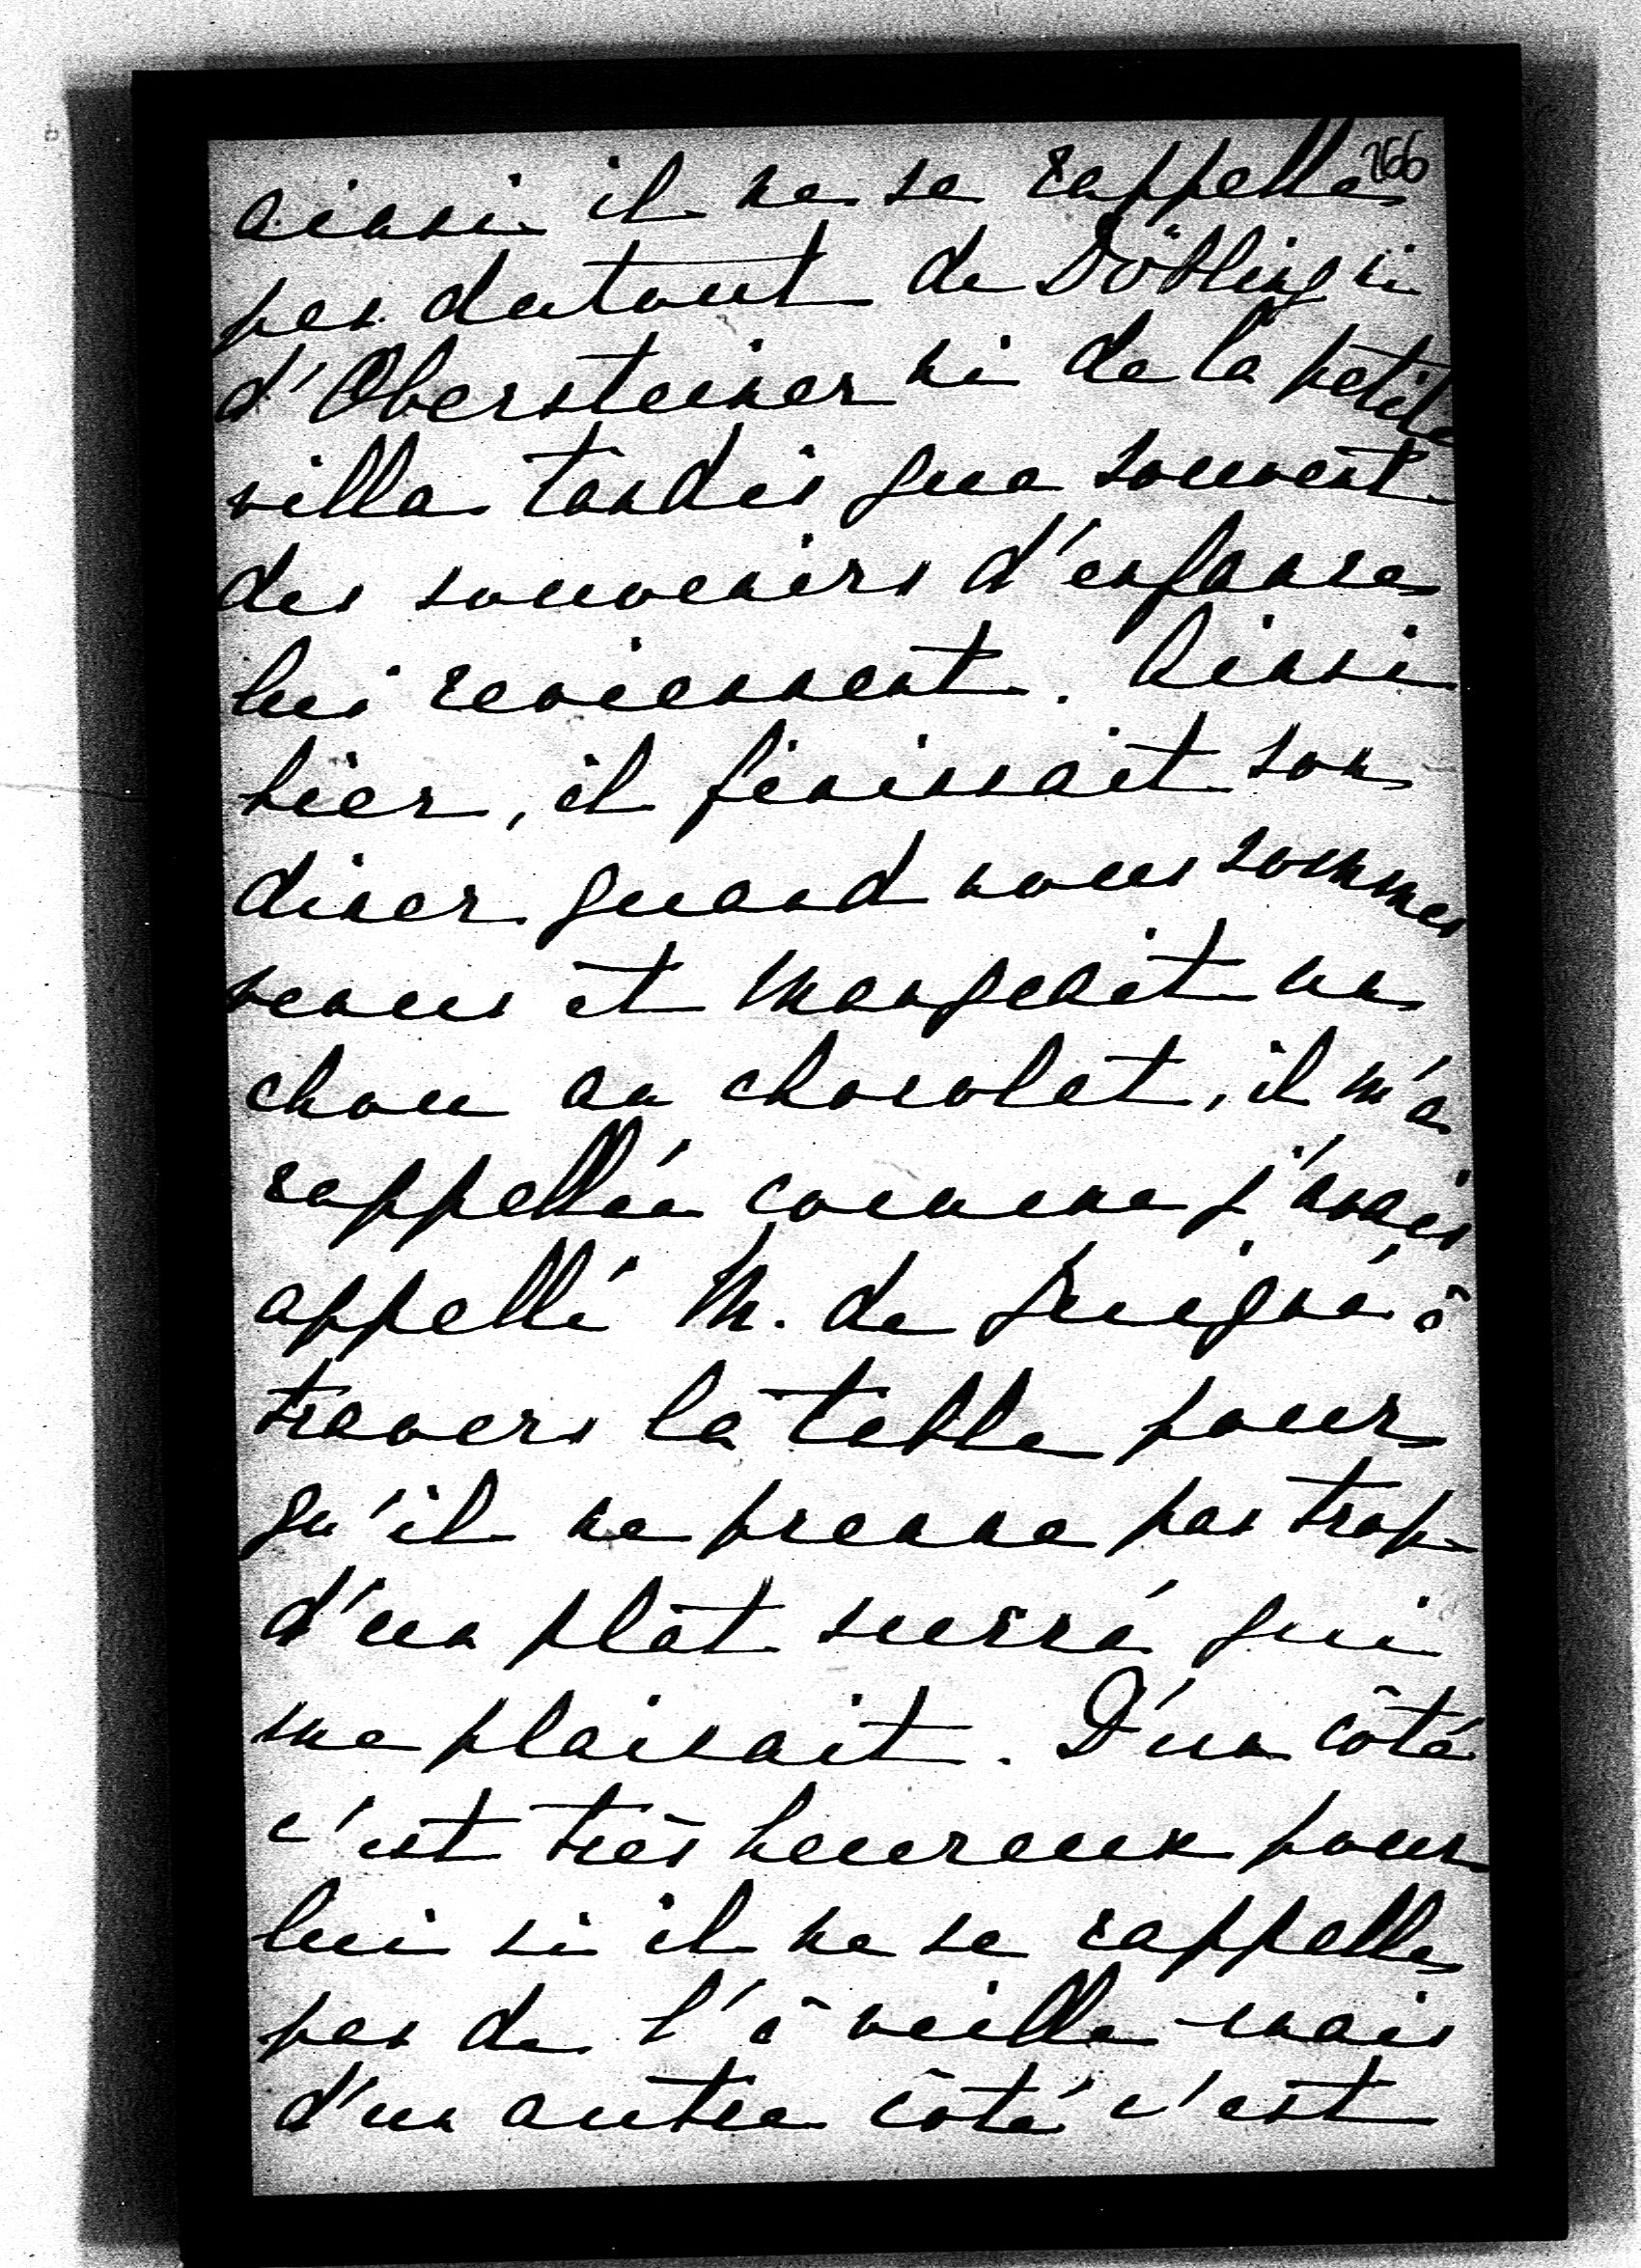 266
ainsi il ne se rappelle
pas dutout de Döbling ni
d'Obersteiner ni de la petite
villa tandis que souvent
des souvenirs d'enfance
lui reviennent. Ainsi
hier, il finissait son
diner quand nous sommes
venues et mangeait un
chou au chocolat, il m'a
rappellée comme j'avais
appellé M. de Guigné à
travers la table pour
qu'il ne prenne pas trop
d'un plat sucré qui
me plaisait. D'un côté
c'est très heureux pour
lui si il ne se rappelle
pas de l'à veille mais
d'un autre côté c'est